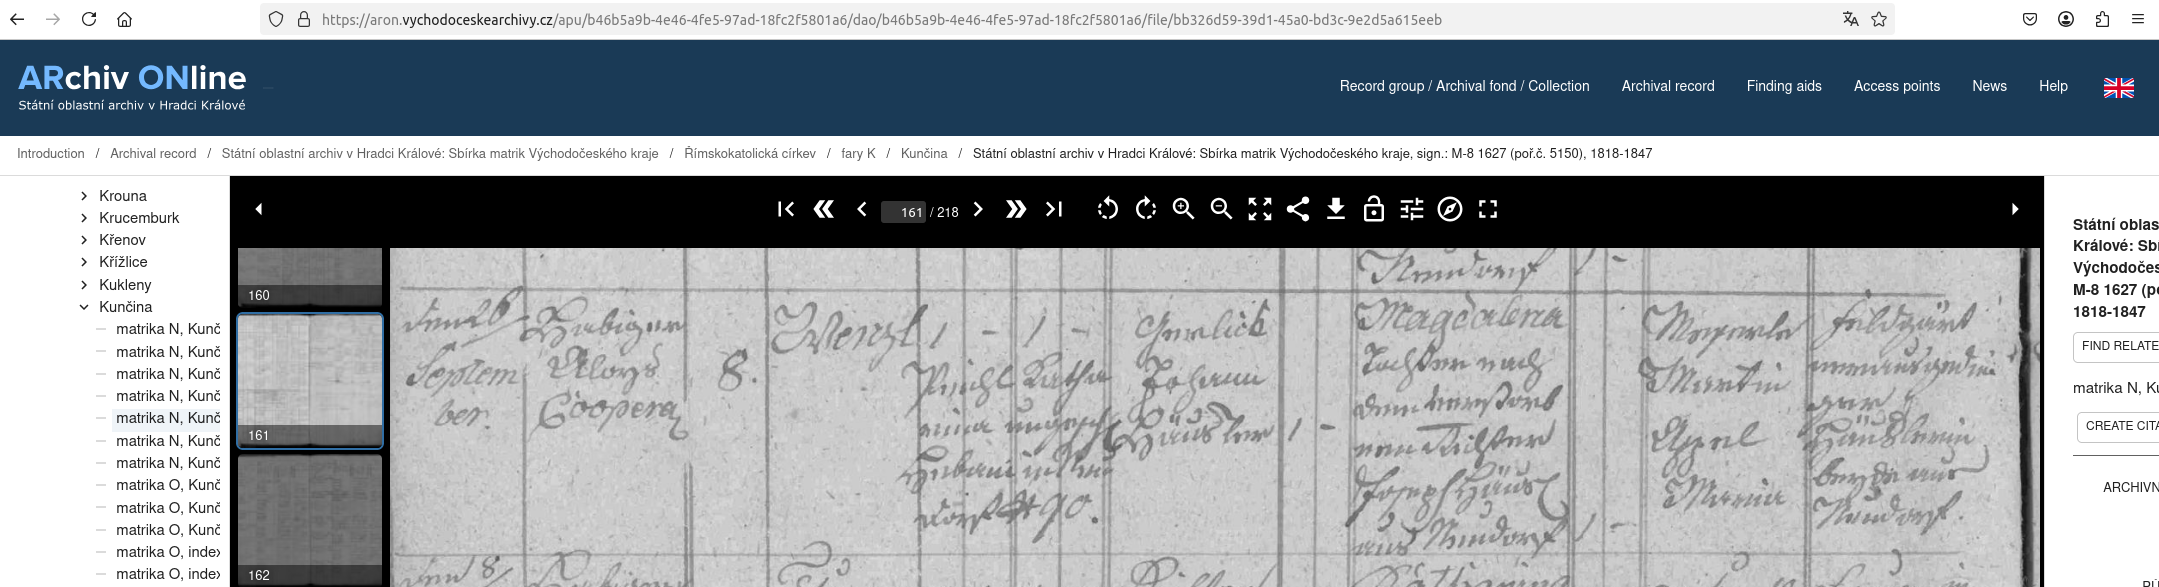 https://aron.vychodoceskearchivy.cz/apu/b46b5a9b-4e46-4fe5-97ad-18fc2f5801a6/dao/b46b5a9b-4e46-4fe5-97ad-18fc2f5801a6/file/bb326d59-39d1-45a0-bd3c-9e2d5a615eeb
ARchiv ONline
Státní oblastní archiv v Hradci Králové
Record group / Archival fond / Collection Archival record Finding aids Access points News Help
Introduction / Archival record / Státní oblastní archiv v Hradci Králové: Sbírka matrik Východočeského kraje / Římskokatolická církev / fary K / Kunčina / Státní oblastní archiv v Hradci Králové: Sbírka matrik Východočeského kraje, sign.: M-8 1627 (poř.č. 5150), 1818-1847
Krouna
Krucemburk
Křenov
Křížlice
Kukleny
Kunčina
matrika N, Kunč
matrika N, Kunč
matrika N, Kunč
matrika N, Kunč
matrika N, Kunč
matrika N, Kunč
matrika N, Kunč
matrika O, Kunč
matrika O, Kunč
matrika O, Kunč
matrika O, index
matrika O, index
161 / 218
160
161
162
Neudorf
den 26
Septem
ber.
Habiger
Aloys
Coopera
8.
Wenzl
Katha
dorf # 90.
Gerlich
Johann
Häusler
Magdalena
Tochter nach
dem verstorb
Joseph
aus Neudorf
Martin
Maria
Feldgärt
Häuslerin
beyde aus
Neudorf.
den 8
Habiger
Státní oblas
Králové: Sb
Východočes
M-8 1627 (p
1818-1847
FIND RELATE
matrika N, Ku
CREATE CITA
ARCHIVN